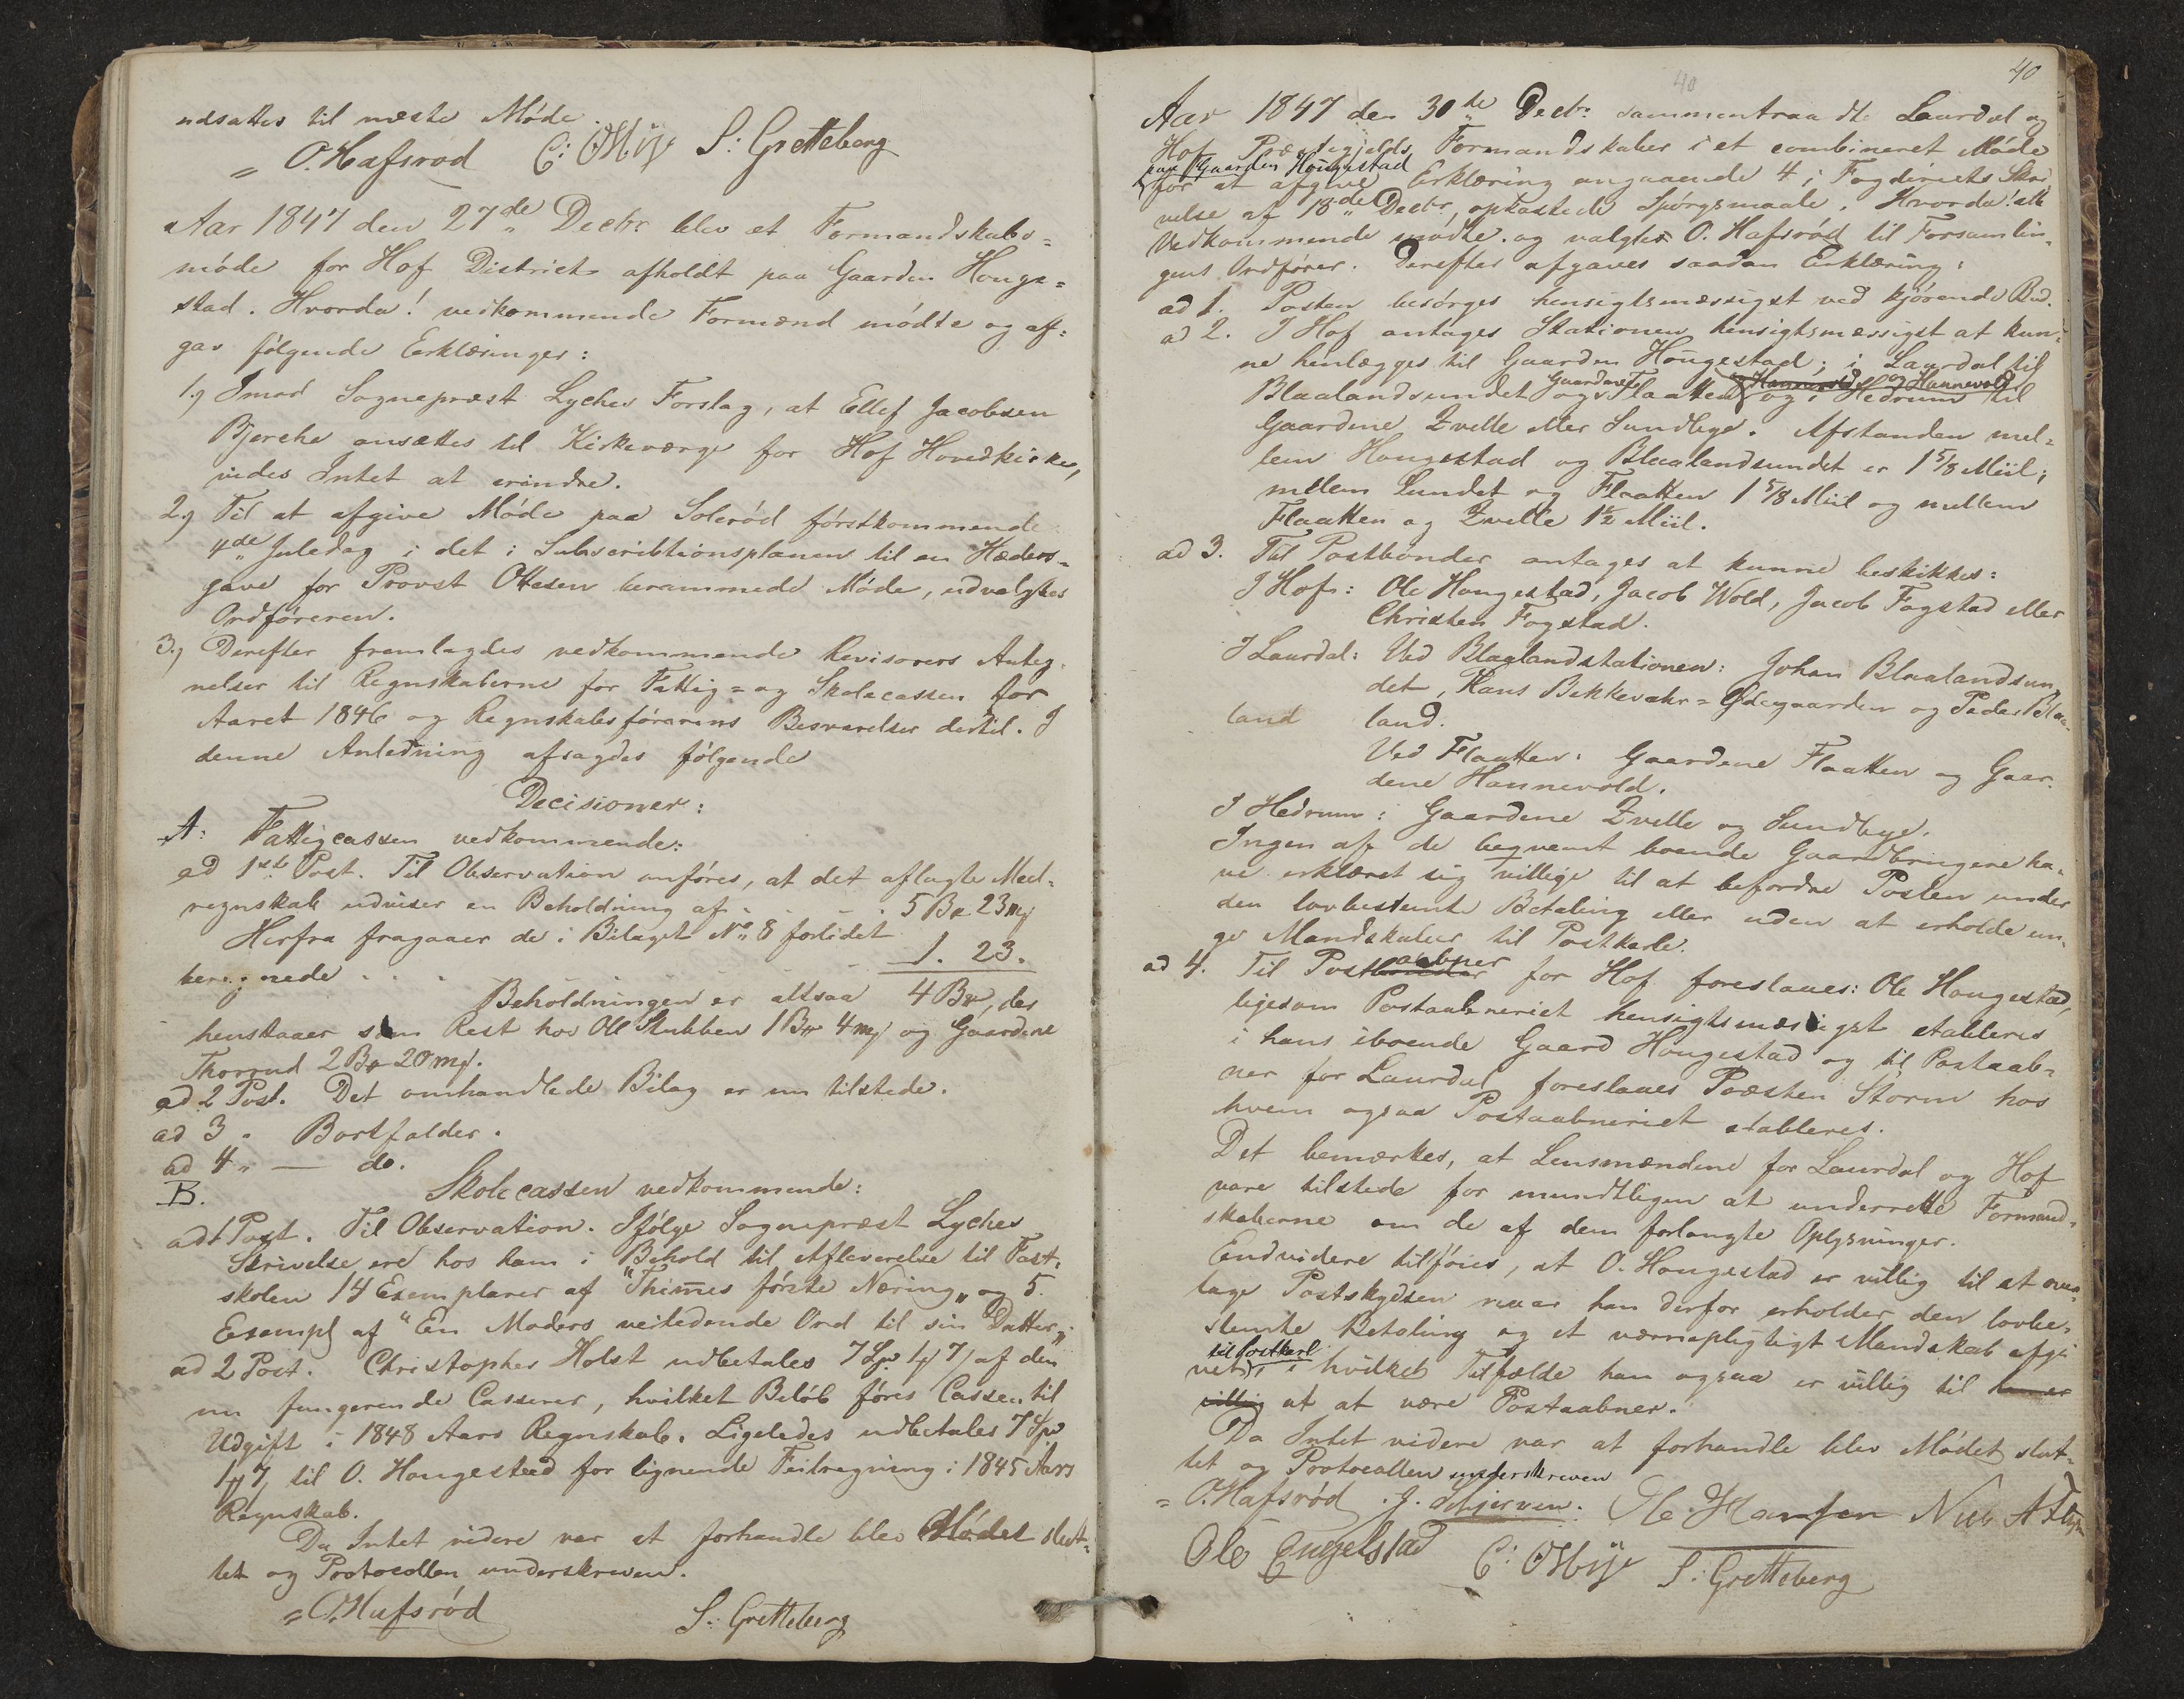 udsattes til næste Møde.
O. Hafsrød C: OMije S: Gretteberg
Aar 1847 den 27de Decbr blev et Formandskabs=
møde for Hof District afholdt paa Gaarden Honge=
stad. Hvorda! vedkommende Formænd mødte og af=
gav følgende Erklæringer:
1.) Imod Sognepræst Lyches Forslag, at Ellef Jacobsen
Bjerche ansættes til Kirkeværge for Hof Hovedkirke,
vides Intet at erindre.
2.) Til at afgive Møde paa Solerød førstkommende
4de Juledag i det i Subscribtionsplanen til en Hæders=
gave for Provst Ottesen berammede Møde, udvalgtes
Ordføreren.
3.) Derefter fremlagdes vedkommende Revisorers Anteg=
nelser til Regnskaberne for Fattig= og Skolecassen for
Aaret 1846 og Regnskabsførerens Besvarelser dertil. I
denne Anledning afsagdes følgende
Decisioner:
A: Fattigcassen vedkommende:
ad 1ste Post. Til Observation anføres, at det aflagte Meel=
regnskab udviser en Beholdning af . . . 5 Br 23 mf
Herfra fragaaer de i Bilaget No 8 forlidet
beregnede . . . 1. 23.
Beholdningen er altsaa 4 Br, der
henstaaer som Rest hos Ole Stubben 1 Br 4 mf og Gaardene
Thorrud 2 Br 20 mf.
ad 2 Post. Det omhandlede Bilag er nu tilstede.
ad 3 " Bortfalder.
ad 4 " — do.
B. Skolecassen vedkommende:
ad 1 Post. Til Observation. Ifølge Sognepræst Lyches
Skrivelse ere hos ham i Behold til Afleverelse til Fast=
skolen 14 Exemplarer af "Thimes første Næring" og 5
Exempl af "En Moders veiledende Ord til sin Datter".
ad 2 Post. Christopher Holst udbetales 7 Sp 1 7 af den
nu fungerende Casserer, hvilket Beløb føres Cassen til
Udgift i 1848 Aars Regnskab. Ligeledes udbetales 7 Sp
1 7 til O. Hongestad for lignende Feilregning i 1845 Aars
Regnskab.
Da Intet videre var at forhandle blev Mødet slut=
tet og Protocollen underskreven.
O. Hafsrød S: Gretteberg
40
40
Aar 1847 den 30te Decbr sammentraadte Laurdal og
Hof Præstegjelds Formandskaber i et combineret Møde
paa Gaarden Hongestad
for at afgive Erklæring angaaende 4 i Fogderiets Skri=
velse af 18de Decbr, opkastede Spørgsmaale. Hvorda! alle
Vedkommende mødte. og valgtes O. Hafsrød til Forsamlin=
gens Ordfører. Derefter afgaves saadan Erklæring:
ad 1. Posten besørges hensigtsmæssigst ved kjørende Bud.
ad 2. I Hof antages Stationen hensigtsmæssigst at kun=
ne henlægges til Gaarden Hongestad; i Laurdal til
Blaalandsundet og Gaardene Flaatten og Hannevold og i Hedrum til
Gaardene Zvelle eller Sundbye. Afstanden mel=
lem Hongestad og Blaalandsundet er 1 5/8 Miil;
mellem Sundet og Flaatten 1 5/8 Miil og mellem
Flaatten og Zvelle 1½ Miil.
ad 3. Til Postbønder antages at kunne beskikkes:
I Hof: Ole Hongestad, Jacob Wold, Jacob Fogstad eller
Christen Fogstad.
I Laurdal: Ved Blaalandstationen: Johan Blaalandsun=
det, Hans Bekkevahr= Ødegaarden og Peder Blaa=
land land.
Ved Flaatten: Gaardene Flaatten og Gaar=
dene Hannevold.
I Hedrum: Gaardene Zvelle og Sundbye.
Ingen af de beqvemt boende Gaardbrugere ha=
ve erklæret sig villige til at befordre Posten under
den lovbestemte Betaling eller uden at erholde un=
ge Mandskaber til Postkarle.
ad 4. Til Postaabner for Hof foreslaaes: Ole Hongestad,
ligesom Postaabneriet hensigtsmæssigst etableres
i hans iboende Gaard Hongestad og til Postaab=
ner for Laurdal foreslaaes Præsten Storm hos
hvem ogsaa Postaabneriet etableres.
Det bemærkes, at Lensmændene for Laurdal og Hof
vare tilstede for mundtligen at underrette Formand=
skaberne om de af dem forlangte Oplysninger.
Endvidere tilføies, at O. Hongestad er villig til at over=
tage Postskydsen naar han derfor erholder den lovbe=
stemte Betaling og et værnepligtigt Mandskab afgi=
vet til Postkarl i hvilket Tilfælde han ogsaa er villig til
villig at at være Postaabner.
Da Intet videre var at forhandle blev Mødet slut=
tet og Protocollen underskreven
O. Hafsrød J. Schjerven. Ole Hansen Niels A
Ole Engelstad C: OMije S: Gretteberg